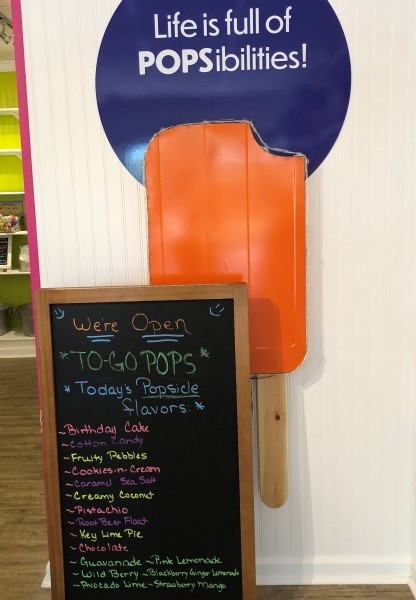 Life is full of
POPSibilities!
We're Open
*TO-GO POPS*
* Today's Popsicle
flavors: *
~Birthday Cake
~Cotton Candy
~Fruity Pebbles
~Cookies-n-Cream
~Caramel Sea Salt
~Creamy Coconut
~Pistachio
~Root Beer Float
~Key Lime Pie
~Chocolate
~Guavanade ~Pink Lemonade
~Wild Berry ~Blackberry Ginger Lemonade
~Avocado Lime ~Strawberry Mango